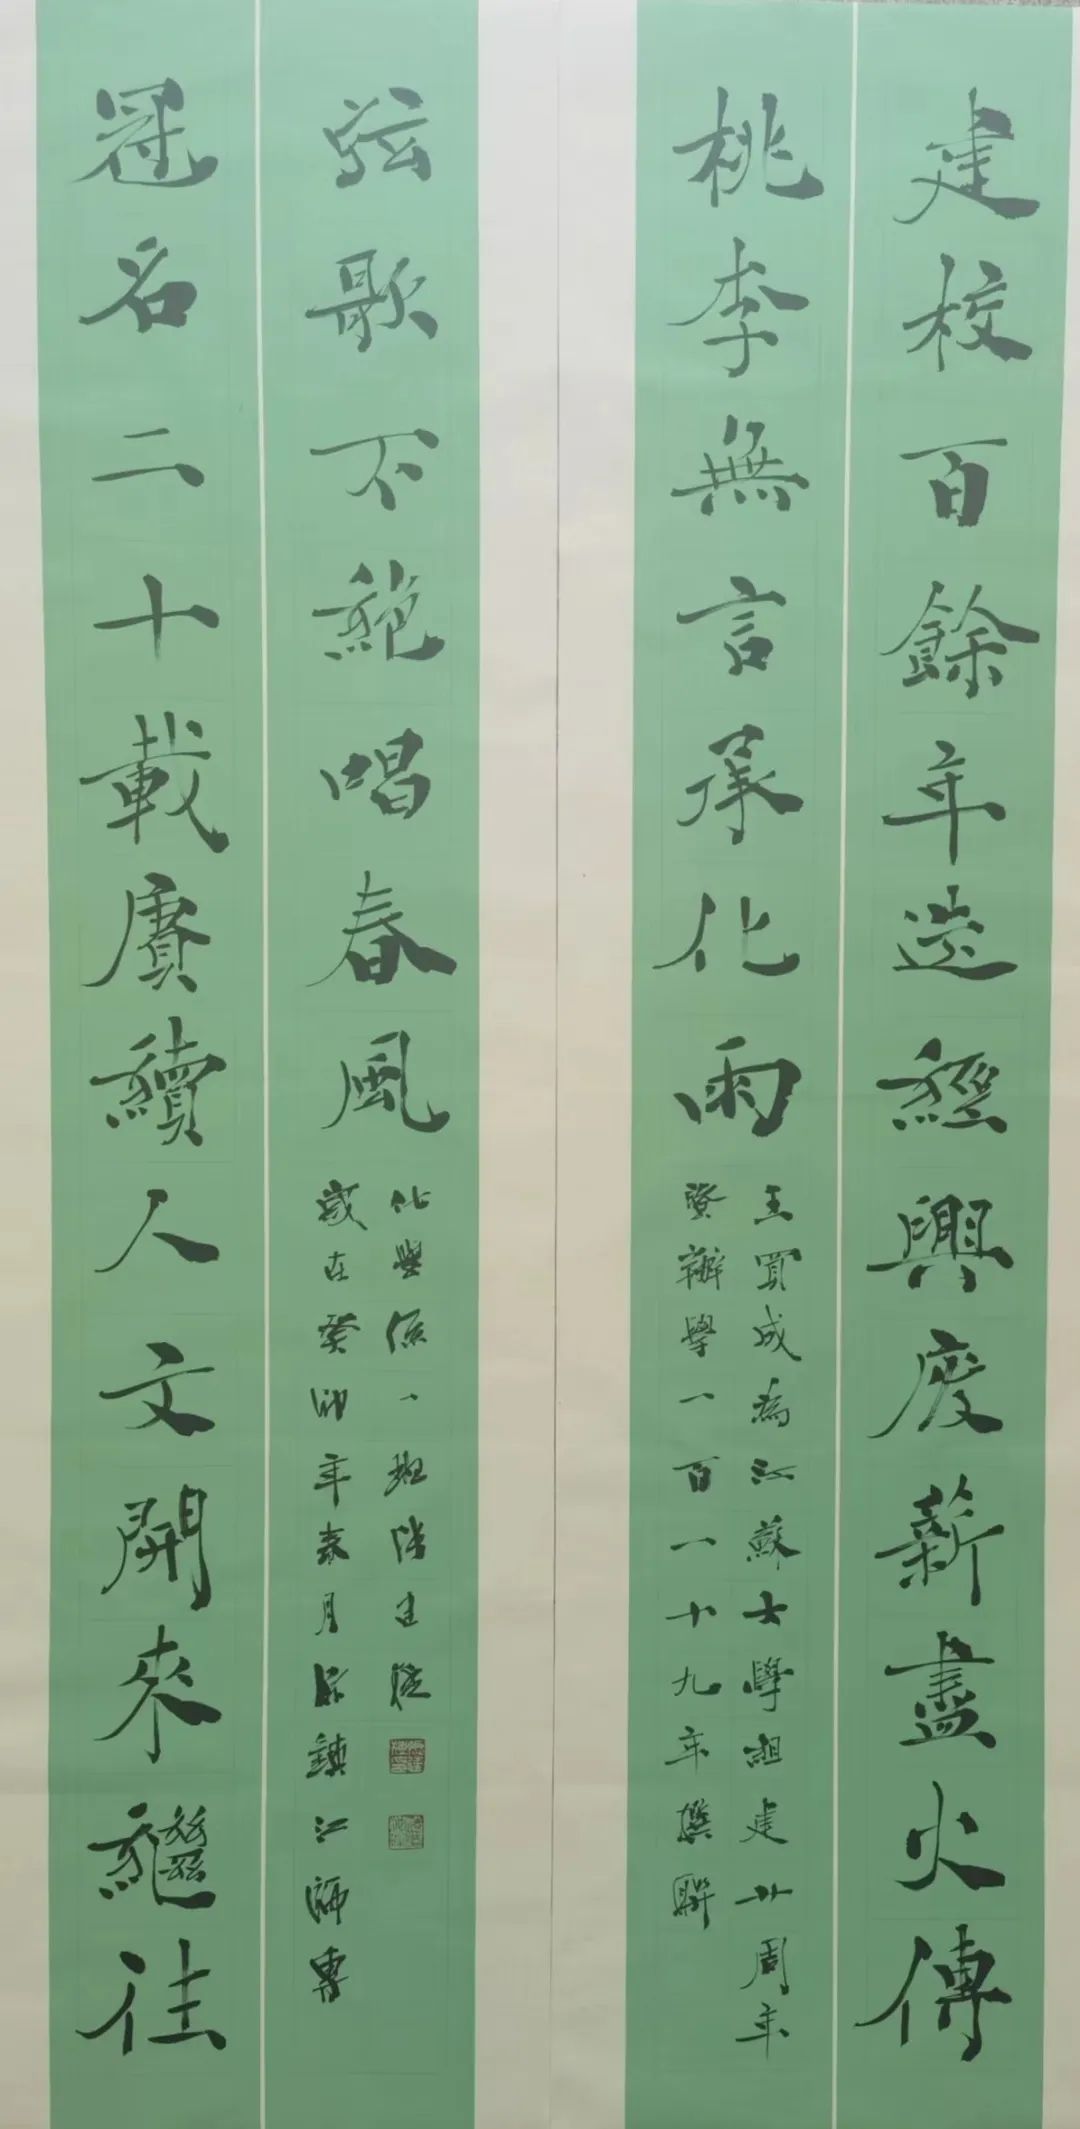 建校百餘年迭經興废薪盡火傳
桃李無言承化雨
王買成為江蘇大學組建廿周年
暨辦學一百一十九年撰聯
冠名二十載賡續人文開來繼往
弦歌不絕唱春風
歲在癸卯年春月原鎮江師專
化學係一班建